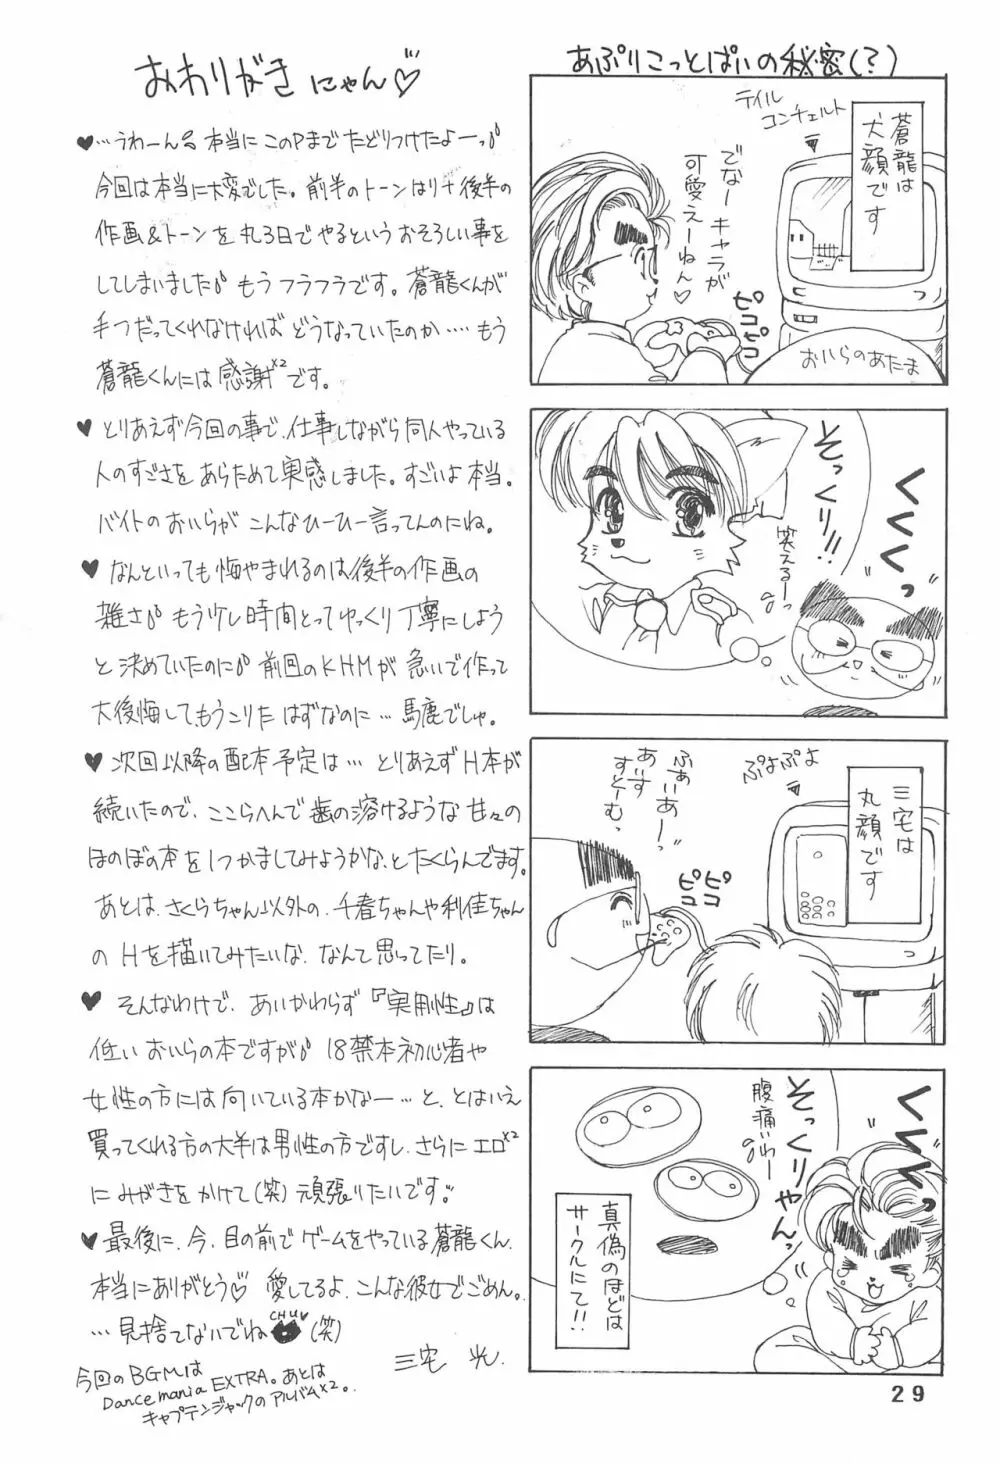 おわりがき にゃん♡
♥…うわーん 本当に このPまで たどりつけたよーっ
今回は本当に大変でした。前半のトーンはり+後半の
作画&トーンを丸3日でやるという おそろしい事を
してしまいました もう フラフラです。蒼龍くんが
手つだってくれなければ どうなっていたのか…. もう
蒼龍くんには 感謝×2です。
♥ とりあえず今回の事で、仕事しながら同人やっている
人のすごさを あらためて実感しました。すごいよ 本当。
バイトのおいらが こんなひーひー言ってんのにね。
♥ なんといっても悔やまれるのは、後半の作画の
雑さ もう少し時間とってゆっくり丁寧にしよう
と決めていたのに 前回のKHMが 急いで作って
大後悔して、もうこりた はずなのに… 馬鹿でしゅ。
♥ 次回以降の配本予定は… とりあえず H本が
続いたので、ここらへんで 歯の溶けるような 甘々の
ほのぼの本を1つかましてみようかな、と たくらんでます。
あとは、さくらちゃん以外の、千春ちゃんや利佳ちゃん
の Hを描いてみたいな、なんて思ってたり。
♥ そんなわけで、あいかわらず『実用性』は
低い おいらの本ですが 18禁本初心者や
女性の方には 向いている本かなー…と、とはいえ
買ってくれる方の大半は男性の方ですし、さらに エロ×2
にみがきをかけて(笑) 頑張りたいです。
♥ 最後に、今、目の前で ゲームをやっている蒼龍くん、
本当にありがとう♡ 愛してるよ、こんな彼女でごめん。
…見捨てないでね CHU♥ (笑)
三宅 光.
今回のBGMは
Dancemania EXTRA。あとは
キャプテンジャックのアルバム×2。
あぷりこっとぱいの秘密(?)
蒼龍は
犬顔です
テイル
コンチェルト
でなー キャラが
可愛えーねん♡
ピコピコ
おいらのあたま
そっくり!!
くくくっ
笑えるーっ
三宅は
丸顔です
ぷよぷよ
ふぁいあーっ
あいす
すとーむっ
ピコ
ピコ
くくくっ
そっくりやんっ
腹痛いわー
真偽のほどは
サークルにて!!
29